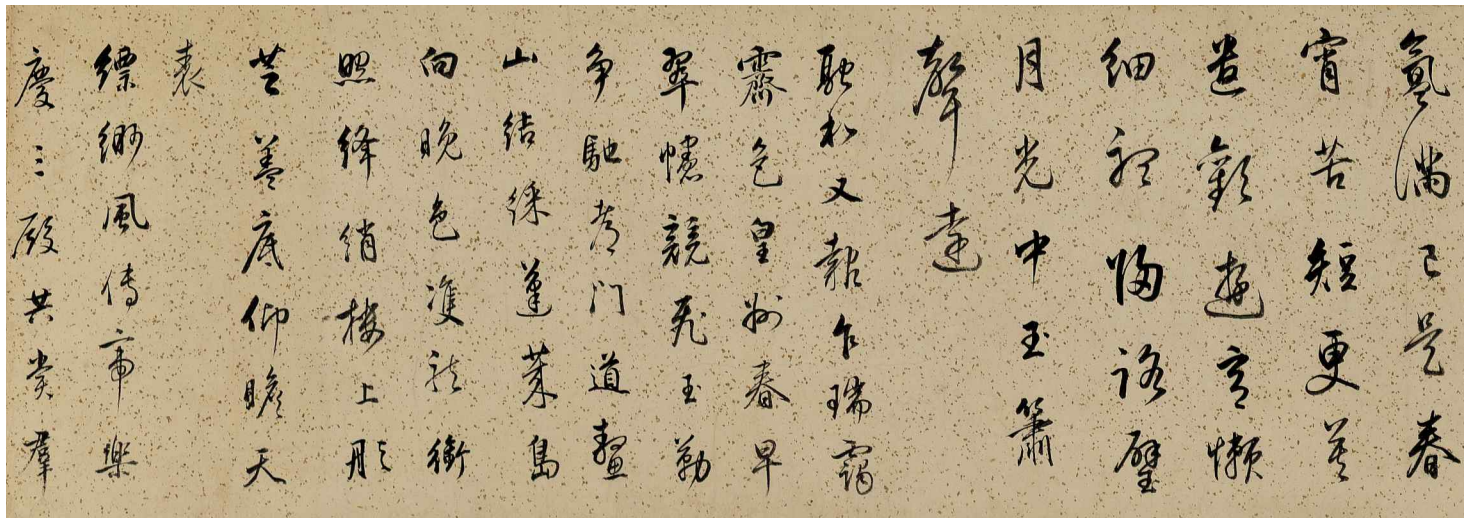 氳滿已是春
宵苦短更莫
遣歡遊意懶
細聽歸路璧
月光中玉簫
聲遠
融和又報乍瑞靄
霽色皇州春早
翠幰競飛玉勒
爭馳都門道鰲
山結綵蓬萊島
向晚色雙龍銜
照絳綃樓上彤
芝蓋底仰瞻天
表
縹緲風傳帝樂
慶三殿共賞羣